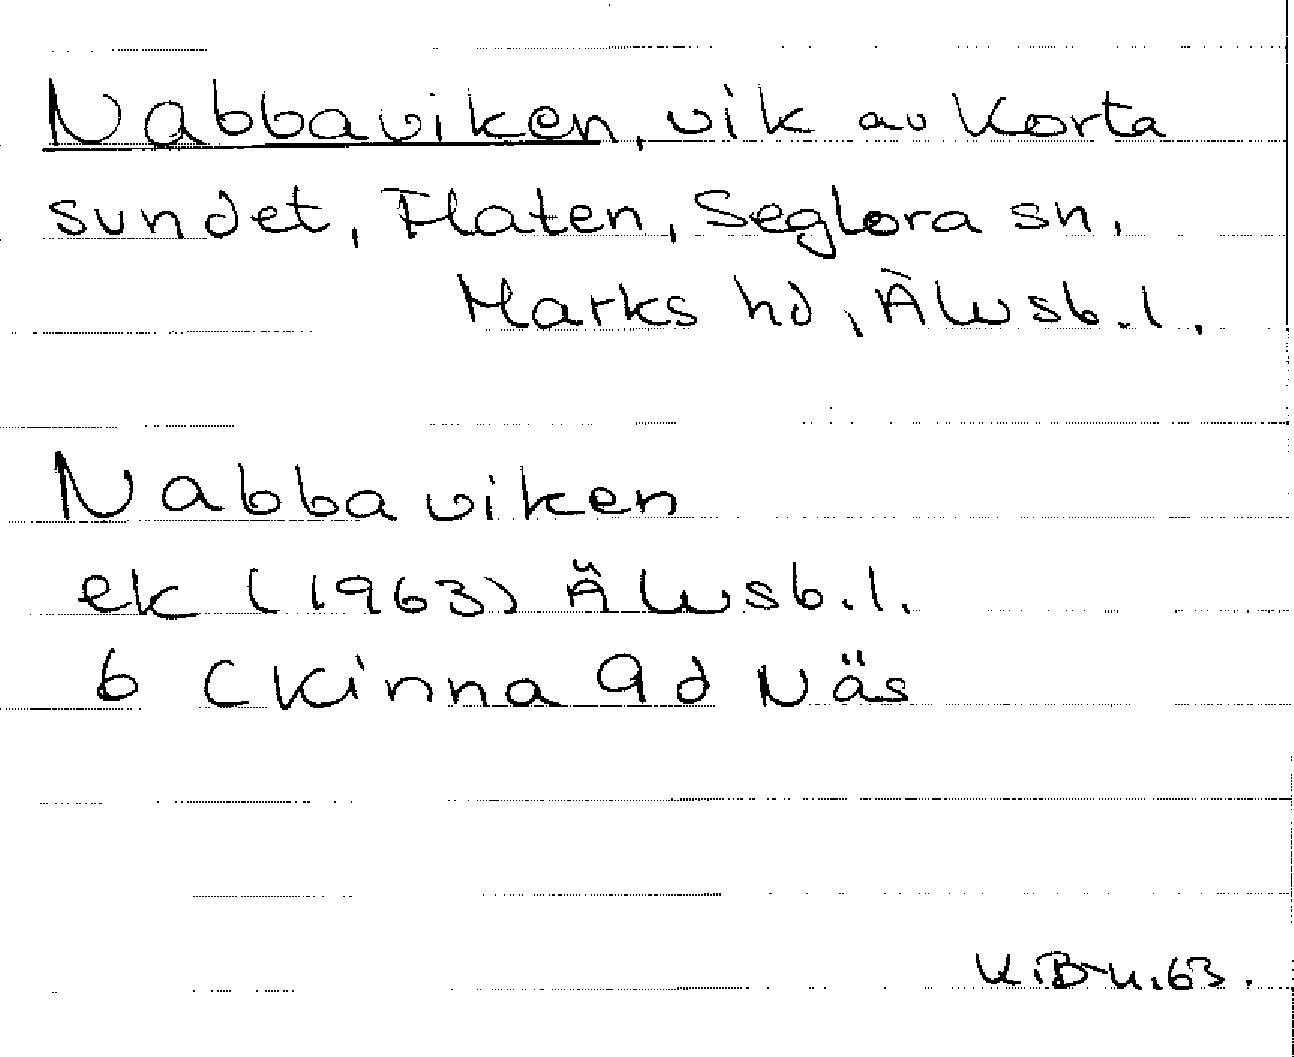 Nabbaviken, vik av Korta
sundet, Flaten, Seglora sn.
Marks hd, Älvsb.l.
Nabbaviken
ek (1963) Älvsb.l.
6 C Kinna 9d Näs
K.B-u.63.